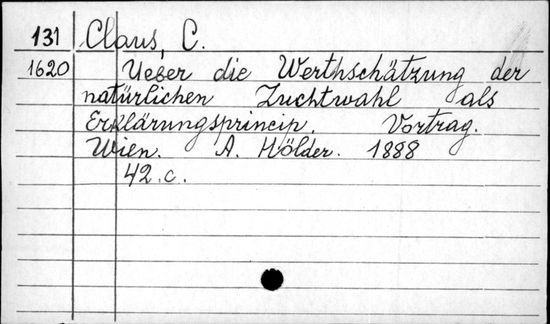 131 Claus, C.
1620 Ueber die Werthschätzung der
natürlichen Zuchtwahl als
Erklärungsprincip. Vortrag.
Wien. A. Hölder. 1888
42.c.